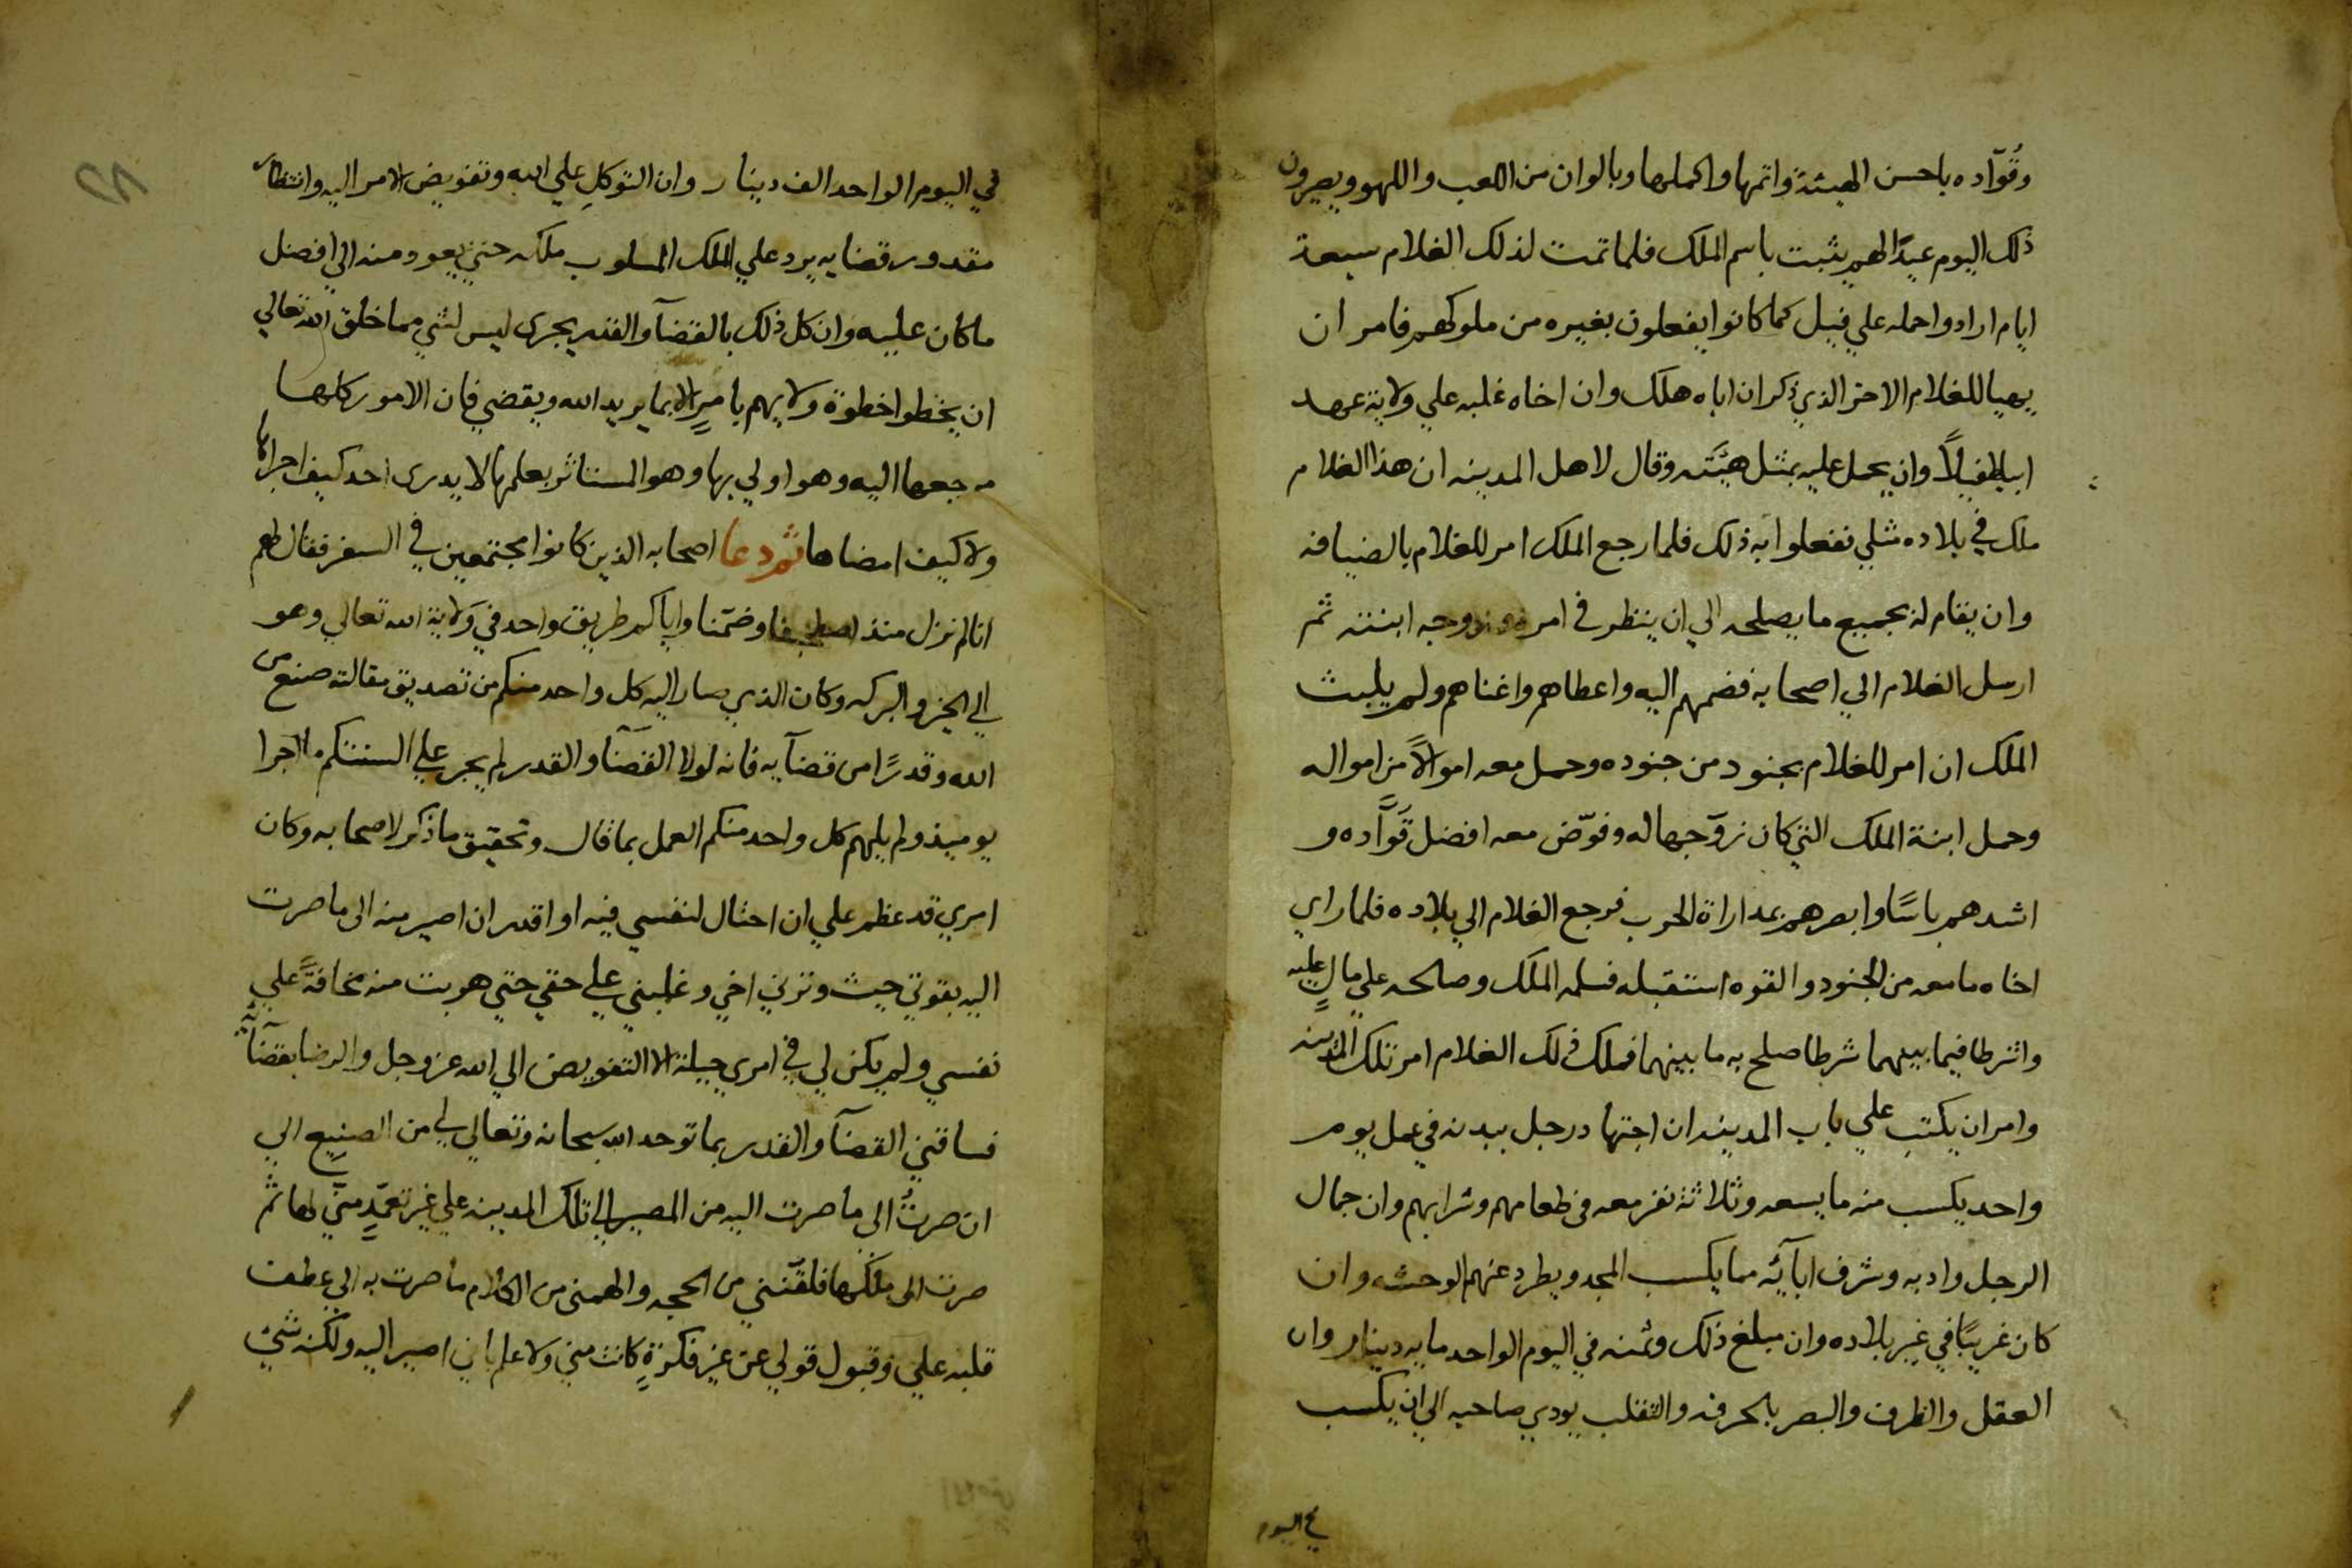 وقُوّاده باحسن الهيئة واتمها واكملها وبالوان من اللعب واللهو ويصيرون
ذلك اليوم عيدًا لهم يثبت باسم الملك فلما تمت لذلك الغلام سبعة
ايام ارادوا حمله علي فيل كما كانوا يفعلون بغيره من ملوكهم فامر ان
يهيا للغلام الاخر الذي ذكر ان اباه هلك وان اخاه غلبه علي ولاية عهد
ابيه فيلاً وان يحمل عليه بمثل هيئته وقال لاهل المدينه ان هذا الغلام
ملك في بلاده مثلي ففعلوا به ذلك فلما رجع الملك امر للغلام بالضيافه
وان يقام له بجميع ما يصلحه الي ان ينظر في امره وزوجه ابنته ثم
ارسل الغلام الي اصحابه فضمهم اليه واعطاهم واغناهم ولم يلبث
الملك ان امر للغلام بجنود من جنوده وحمل معه اموالاً من امواله
وحمل ابنة الملك التي كان زوّجها له وفوّض معه افضل قُوَّاده و
اشدهم باسًا وابصرهم بمداراة الحرب فرجع الغلام الي بلاده فلما راي
اخاه ما معه من الجنود والقوه استقبله فسلمه الملك وصالحه علي مالٍ عليه
واشرطا فيما بينهما شرطا صلح به ما بينهما فملك ذلك الغلام امر تلك المدينه
وامر ان يكتب علي باب المدينه ان اجتهاد رجل ببدنه في عمل يوم
واحد يكسب منه ما يسعه وثلاثة نفر معه في طعامهم وشرابهم وان جمال
الرجل وادبه وشرف ابآئه مما يكسب المجد ويطرد عنهم الوحشه وان
كان غريبًا في غير بلاده وان مبلغ ذلك وثمنه في اليوم الواحد مايه دينار وان
العقل والظرف والبصر بالحرفه والتقلب يودي صاحبه الي ان يكسب
في اليوم
في اليوم الواحد الف دينار وان التوكل علي الله وتفويض الامر اليه وانتظار
مقدور قضايه يرد علي الملك المسلوب ملكه حتي يعود منه الي افضل
ما كان عليه وان كل ذلك بالقضآ والقدر يجري ليس لشي مما خلق الله تعالي
ان يخطوا خطوة ولا يهم بامرٍ الا بما يريد الله ويقضي فان الامور كلها
مرجعها اليه وهو اولي بها وهو المستاثر بعلمها لا يدري احد كيف اجراها
ولا كيف امضاها ثم دعا اصحابه الذين كانوا مجتمعين في السفر فقال لهم
انا لم نزل منذ اصطحبنا وضمّنا واياكم طريق واحد في ولاية الله تعالي وهو
الي الخير والبركه وكان الذي صار اليه كل واحد منكم من تصديق مقالته صنع من
الله وقدرًا من قضآيه فانه لولا القضآ والقدر لم يجر علي السنتكم ما اجرا
يوميذ ولم يلهم كل واحد منكم العمل بما قال وتحقيق ما ذكر لاصحابه وكان
امري قد عظم علي ان احتال لنفسي فيه او اقدر ان اصير منه الي ما صرت
اليه بقوتي حيث وترني اخي وغلبني علي حقي حتي هربت منه مخافةً علي
نفسي ولم يكن لي في امري حيلة الا التفويض الي الله عز وجل والرضا بقضآئه
فساقني القضآ والقدر بما توحد الله سبحانه وتعالي لي من الصنيع الي
ان صرتُ الي ما صرت اليه من المصير الي تلك المدينه علي غير تعمّدٍ مني لها ثم
صرت الي ملكها فلقّنني من الحجه والهمني من الكلام ما صرت به الي عطف
قلبه علي وقبول قولي عن غير فكرةٍ كانت مني ولا علم باني اصير اليه ولكنه شي